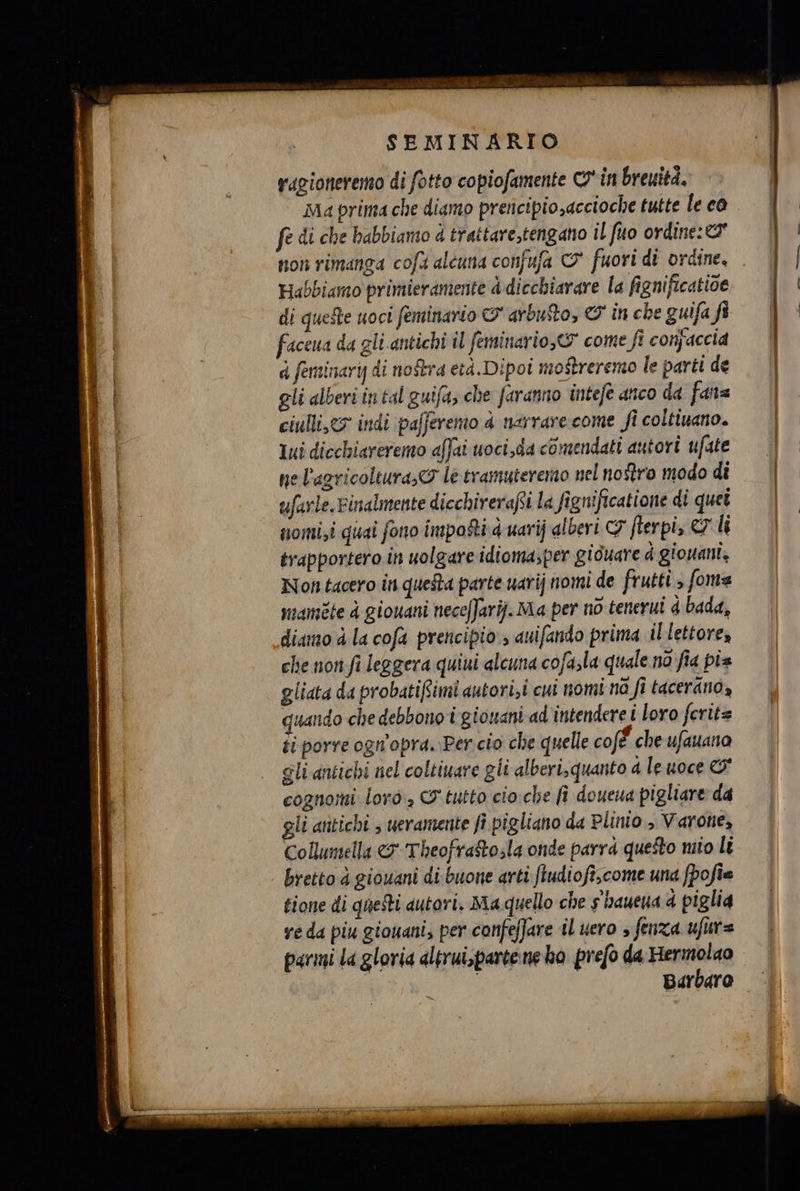 SEMINARIO
ragioneremo di ſotto copioſamente & in breuità.
Ma prima che diamo prencipio,accioche tutte le co
ſe di che habbiamo à trattare,tengano il ſuo ordine:&
non rimanga coſa alcuna confuſa & fuori di ordine.
Habbiamo primieramente à dicchiarare la ſignificatiõe
di queſte uoci ſeminario & arbuſto, & in che guiſa ſi
faceua da gli antichi il ſeminario,& come ſi confaccia
à ſeminarij di noſtra età.Dipoi moſtreremo le parti de
gli alberi in tal guiſa, che ſaranno inteſe anco da fan=
ciulli,& indi paſſeremo à narrare come ſi coltiuano.
Iui dicchiareremo aſſai uoci,da cõmendati autori uſate
ne l'agricoltura,& le tramuteremo nel noſtro modo di
uſarle.Finalmente dicchireraſſi la ſignificatione di quei
nomi,i quai ſono impoſti à uarij alberi & ſterpi, & li
trapportero in uolgare idioma,per giouare à giouani.
Non tacero in queſta parte uarij nomi de frutti , ſom=
mamẽte à giouani neceſſarij. Ma per nõ tenerui à bada,
diamo à la coſa prencipio , auiſando prima il lettore,
che non ſi leggera quiui alcuna coſa,la quale nõ ſia pi=
gliata da probatiſsimi autori,i cui nomi nõ ſi tacerãno,
quando che debbono i giouani ad intendere i loro ſcrit=
ti porre ogn'opra. Per cio che quelle coſe che uſauano
gli antichi nel coltiuare gli alberi,quanto à le uoce &
cognomi loro , & tutto cio che ſi doueua pigliare da
gli antichi , ueramente ſi pigliano da Plinio , Varone,
Collumella & Theofraſto,la onde parrà queſto mio li
bretto à giouani di buone arti ſtudioſi,come una ſpoſi=
tione di queſti autori. Ma quello che s'haueua à piglia
re da piu giouani, per confeſſare il uero , ſenza uſur=
parmi la gloria altrui,parte ne ho preſo da Hermolao
Barbaro